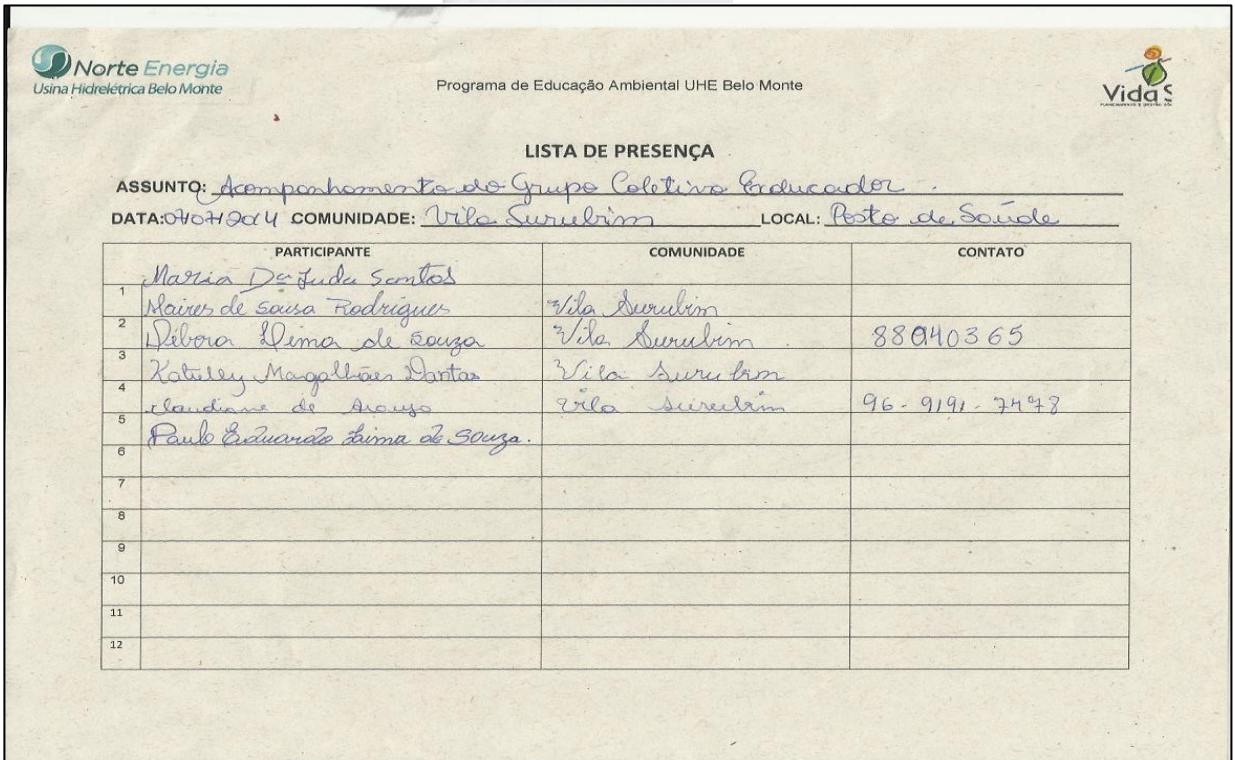 Norte Energia
Usina Hidrelétrica Belo Monte
Programa de Educação Ambiental UHE Belo Monte
Vida
LISTA DE PRESENÇA
ASSUNTO: Acompanhamento do Grupo Coletivo Educador.
DATA: 07/07/2014 COMUNIDADE: Vila Surubim LOCAL: Posto de Saúde
PARTICIPANTE COMUNIDADE CONTATO
1 Maria Da Santos
2 Maires de Sousa Rodrigues Vila Surubim
3 Débora Lima de Souza Vila Surubim 88040365
4 Katulley Magalhães Dantas Vila Surubim
5 Claudiane de Araujo Vila Surubim 96-9191-7478
6 Paulo Eduardo Lima de Souza.
7
8
9
10
11
12